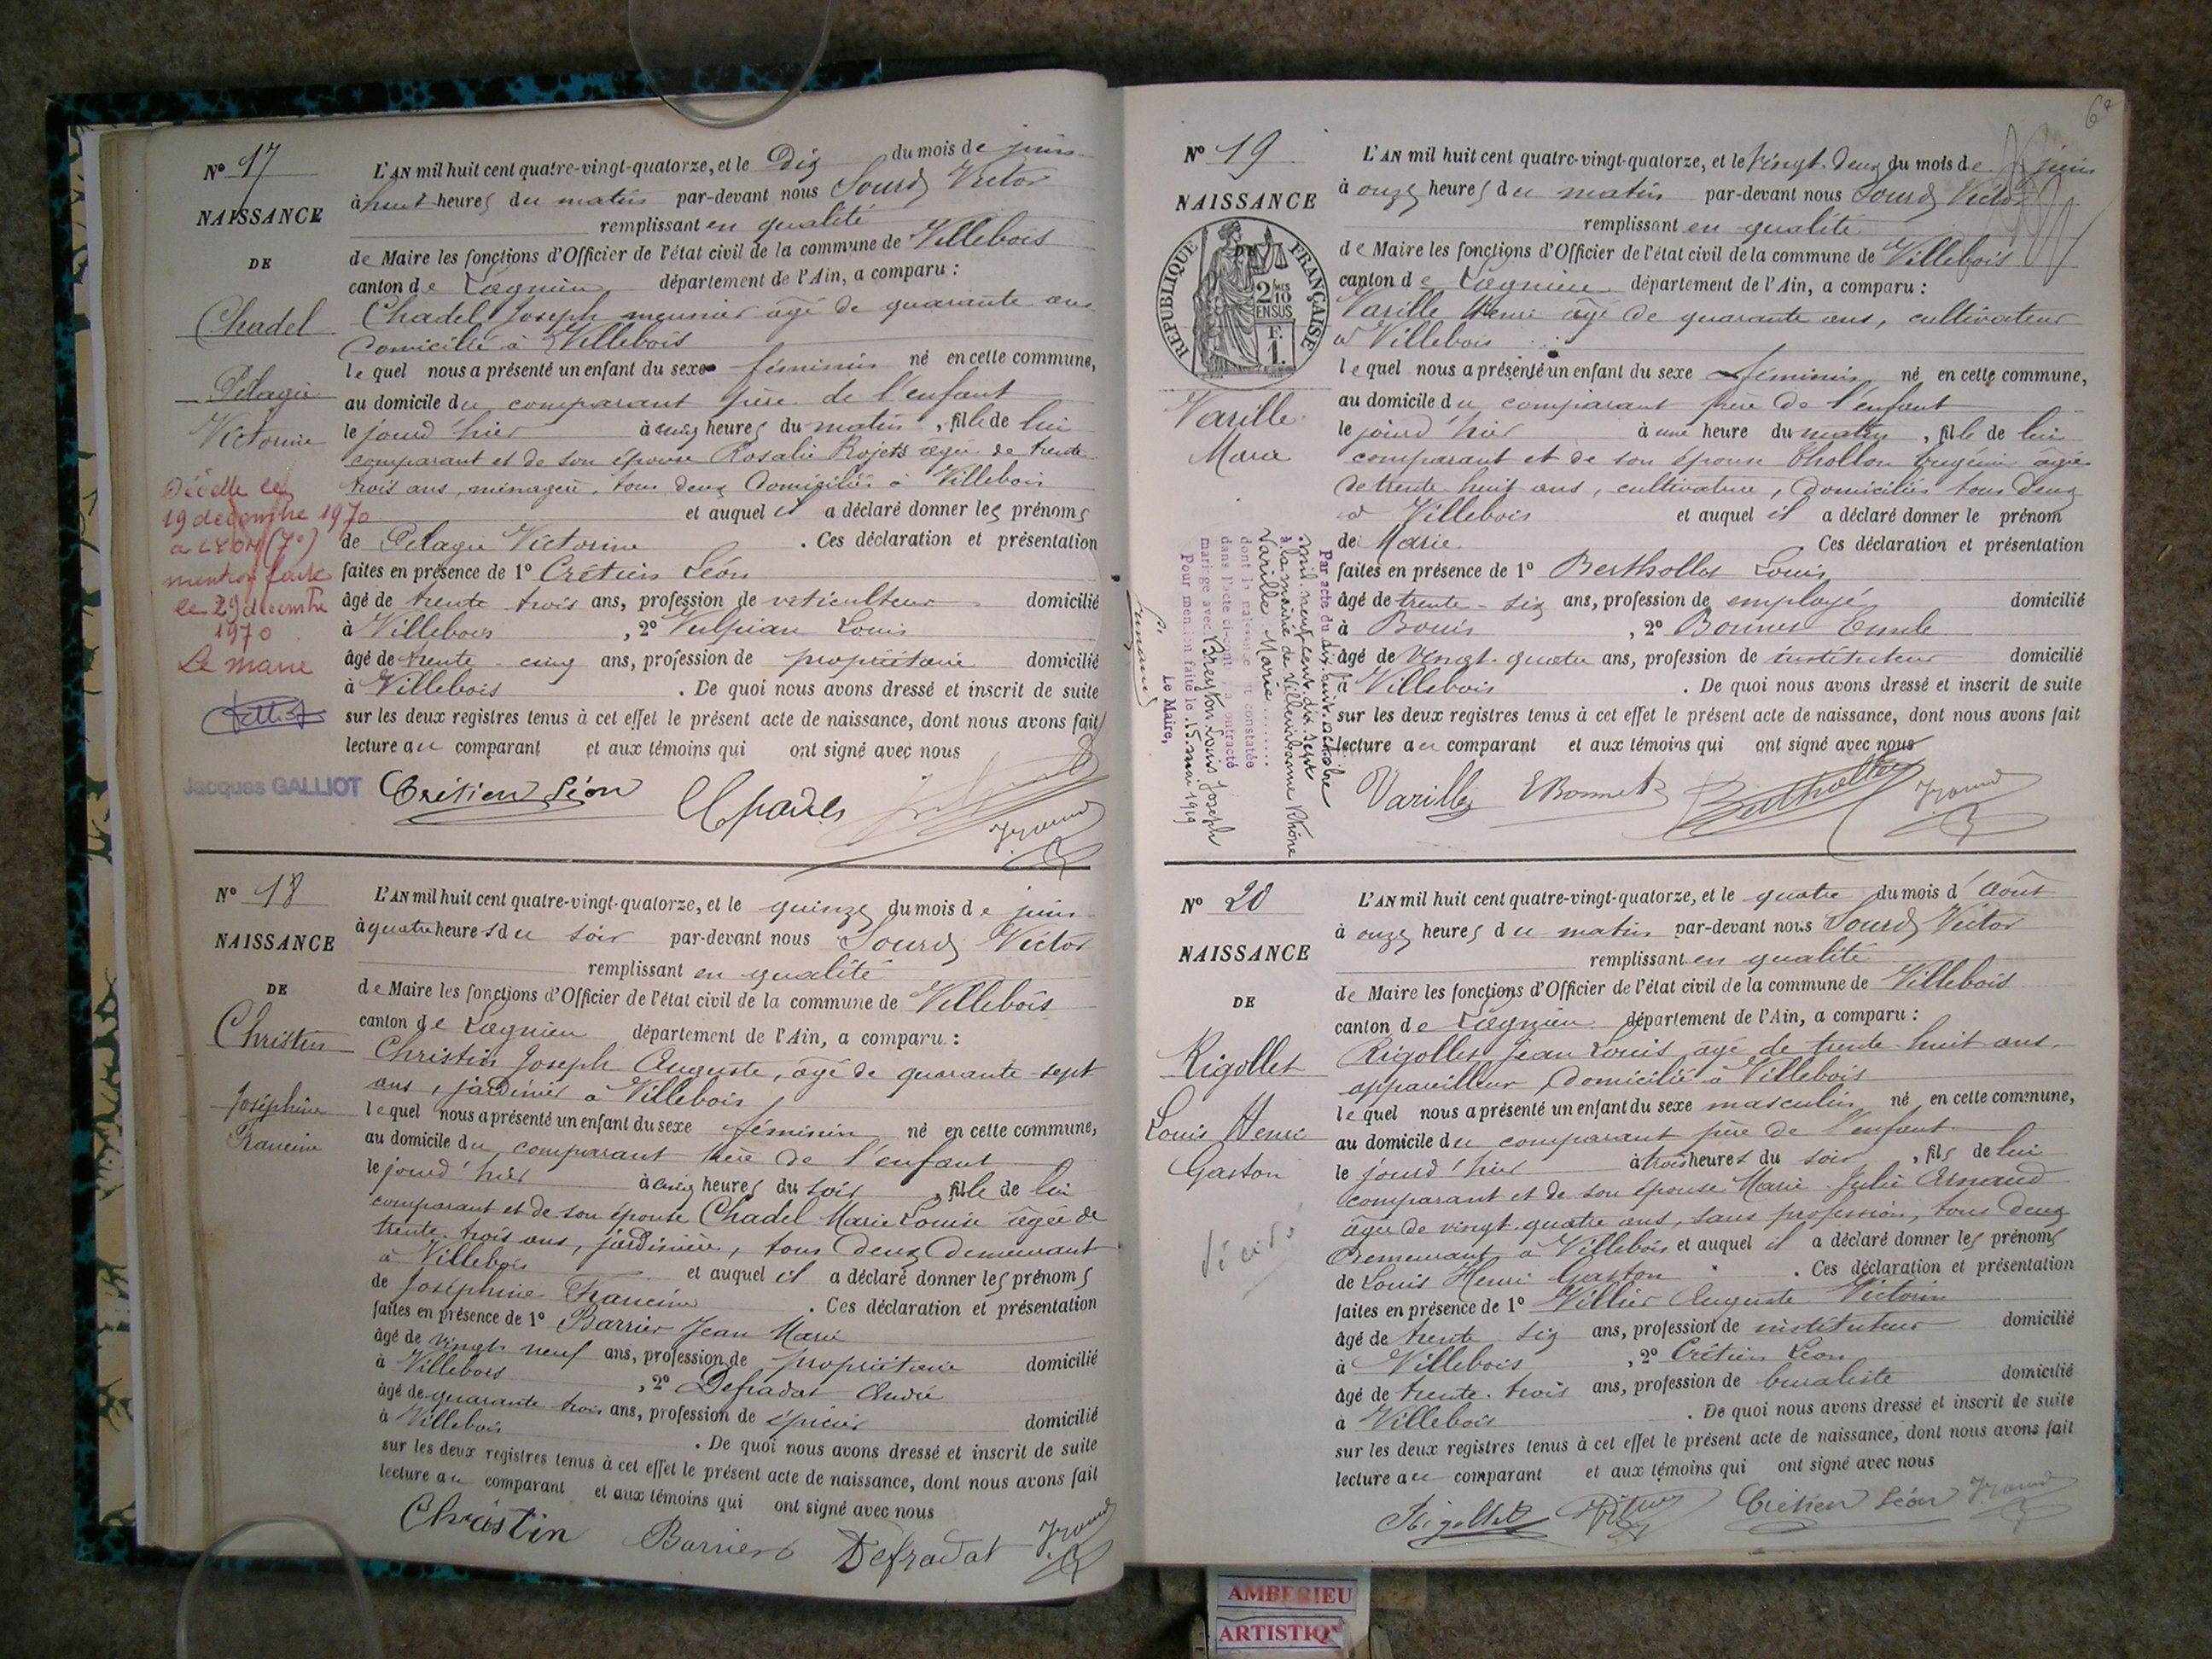 Nº 17
NAISSANCE
DE
Chadel
Pélagie
Victorine
Décédée le
19 décembre 1970
à LYON (7e)
mention faite
le 29 décembre
1970
Le maire
Jacques GALLIOT
L'AN mil huit cent quatre-vingt-quatorze, et le Dix du mois de juin
à huit heures du matin par-devant nous Sourd Victor
remplissant en qualité
de Maire les fonctions d'Officier de l'état civil de la commune de Villebois
canton de Lagnieu département de l'Ain, a comparu :
Chadel Joseph meunier âgé de quarante ans
domicilié à Villebois
lequel nous a présenté un enfant du sexe féminin né en cette commune,
au domicile du comparant père de l'enfant
le jourd'hier à cinq heures du matin, fille de lui
comparant et de son épouse Rosalie Rojets âgée de trente
trois ans, ménagère, tous deux domiciliés à Villebois
et auquel il a déclaré donner les prénoms
de Pélagie Victorine. Ces déclaration et présentation
faites en présence de 1º Crétien Léon
âgé de trente trois ans, profession de viticulteur domicilié
à Villebois, 2º Vulpian Louis
âgé de trente-cinq ans, profession de propriétaire domicilié
à Villebois. De quoi nous avons dressé et inscrit de suite
sur les deux registres tenus à cet effet le présent acte de naissance, dont nous avons fait
lecture au comparant et aux témoins qui ont signé avec nous
Crétien Léon
Nº 18
NAISSANCE
DE
Christin
Joséphine
Francine
L'AN mil huit cent quatre-vingt-quatorze, et le quinze du mois de juin
à quatre heures du soir par-devant nous Sourd Victor
remplissant en qualité
de Maire les fonctions d'Officier de l'état civil de la commune de Villebois
canton de Lagnieu département de l'Ain, a comparu :
Christin Joseph Auguste, âgé de quarante-sept
ans, jardinier à Villebois
lequel nous a présenté un enfant du sexe féminin né en cette commune,
au domicile du comparant père de l'enfant
le jourd'hier à cinq heures du soir, fille de lui
comparant et de son épouse Chadel Marie Louise âgée de
trente-trois ans, jardinière, tous deux demeurant
à Villebois et auquel il a déclaré donner les prénoms
de Joséphine Francine. Ces déclaration et présentation
faites en présence de 1º Barrier Jean Marie
âgé de vingt neuf ans, profession de propriétaire domicilié
à Villebois, 2º Defradat André
âgé de quarante trois ans, profession de épicier domicilié
à Villebois. De quoi nous avons dressé et inscrit de suite
sur les deux registres tenus à cet effet le présent acte de naissance, dont nous avons fait
lecture au comparant et aux témoins qui ont signé avec nous
Christin Barrier Defradat
Nº 19
NAISSANCE
DE
RÉPUBLIQUE FRANÇAISE
2/10 EN SUS
F. 1.
Varille
Marie
Par acte du dix huit octobre
mil neuf cent dix sept
à la mairie de Villeurbanne Rhône
Varille Marie
dont la naissance est constatée
dans l'acte ci-contre, a contracté
mariage avec Breyton Louis Joseph
Pour mention faite le 15 mai 1919
Le Maire,
L'AN mil huit cent quatre-vingt-quatorze, et le Vingt-deux du mois de juin
à onze heures du matin par-devant nous Sourd Victor
remplissant en qualité
de Maire les fonctions d'Officier de l'état civil de la commune de Villebois
canton de Lagnieu département de l'Ain, a comparu :
Varille Henri âgé de quarante ans, cultivateur
à Villebois
lequel nous a présenté un enfant du sexe féminin né en cette commune,
au domicile du comparant père de l'enfant
le jourd'hier à une heure du matin, fille de lui
comparant et de son épouse Chollon Eugénie âgée
de trente huit ans, cultivatrice, domiciliés tous deux
à Villebois et auquel il a déclaré donner le prénom
de Marie Ces déclaration et présentation
faites en présence de 1º Berthollet Louis
âgé de trente-six ans, profession de employé domicilié
à Bouis, 2º Bonnet Emile
âgé de vingt-quatre ans, profession de instituteur domicilié
à Villebois. De quoi nous avons dressé et inscrit de suite
sur les deux registres tenus à cet effet le présent acte de naissance, dont nous avons fait
lecture au comparant et aux témoins qui ont signé avec nous
Varille E Bonnet Berthollet
Nº 20
NAISSANCE
DE
Rigollet
Louis Henri
Gaston
décédé
L'AN mil huit cent quatre-vingt-quatorze, et le quatre du mois d'Août
à onze heures du matin par-devant nous Sourd Victor
remplissant en qualité
de Maire les fonctions d'Officier de l'état civil de la commune de Villebois
canton de Lagnieu département de l'Ain, a comparu :
Rigollet Jean Louis âgé de trente-huit ans,
appareilleur, domicilié à Villebois
lequel nous a présenté un enfant du sexe masculin né en cette commune,
au domicile du comparant père de l'enfant
le jourd'hier à trois heures du soir, fils de lui
comparant et de son épouse Marie Julie Arnaud
âgée de vingt-quatre ans, sans profession, tous deux
demeurant à Villebois et auquel il a déclaré donner les prénoms
de Louis Henri Gaston. Ces déclaration et présentation
faites en présence de 1º Villier Auguste Victorin
âgé de trente six ans, profession de instituteur domicilié
à Villebois, 2º Crétien Léon
âgé de trente-trois ans, profession de buraliste domicilié
à Villebois. De quoi nous avons dressé et inscrit de suite
sur les deux registres tenus à cet effet le présent acte de naissance, dont nous avons fait
lecture au comparant et aux témoins qui ont signé avec nous
Rigollet Crétien Léon
AMBERIEU
ARTISTIQ